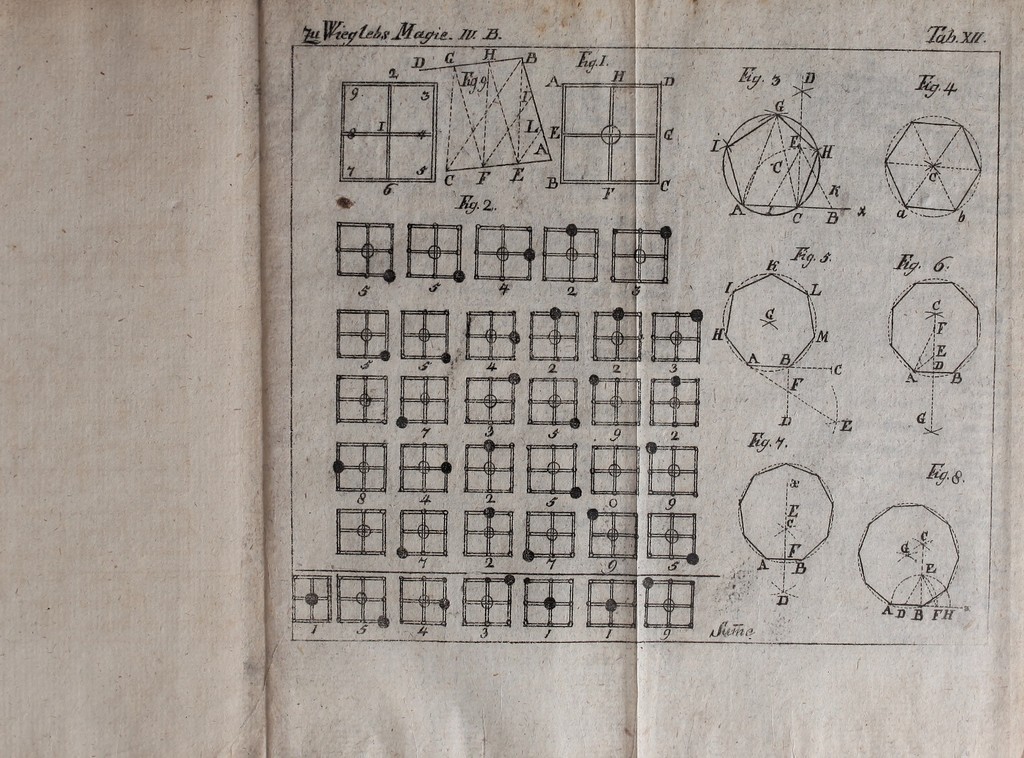 zu Wieglebs Magie. IV. B.
Tab. XII.
2
9 3
8 1 4
7 5
6
D G H B
Fig. 9
I
L
A
C F E
Fig. 1.
A H D
E G
B F C
Fig. 2.
5 5 4 2 3
5 5 4 2 2 3
7 3 5 9 2
8 4 2 5 0 9
7 2 7 9 5
1 5 4 3 1 1 9
Sum̄e
Fig. 3
D
G
I E H
C
K
A I C B x
Fig. 4
C
a b
Fig. 5.
K
I L
G
H M
A B C
F
D E
Fig. 6.
C
F
E
D
A B
G
Fig. 7.
x
E
C
F
A B
D
Fig. 8.
G C
E
A D B F H x